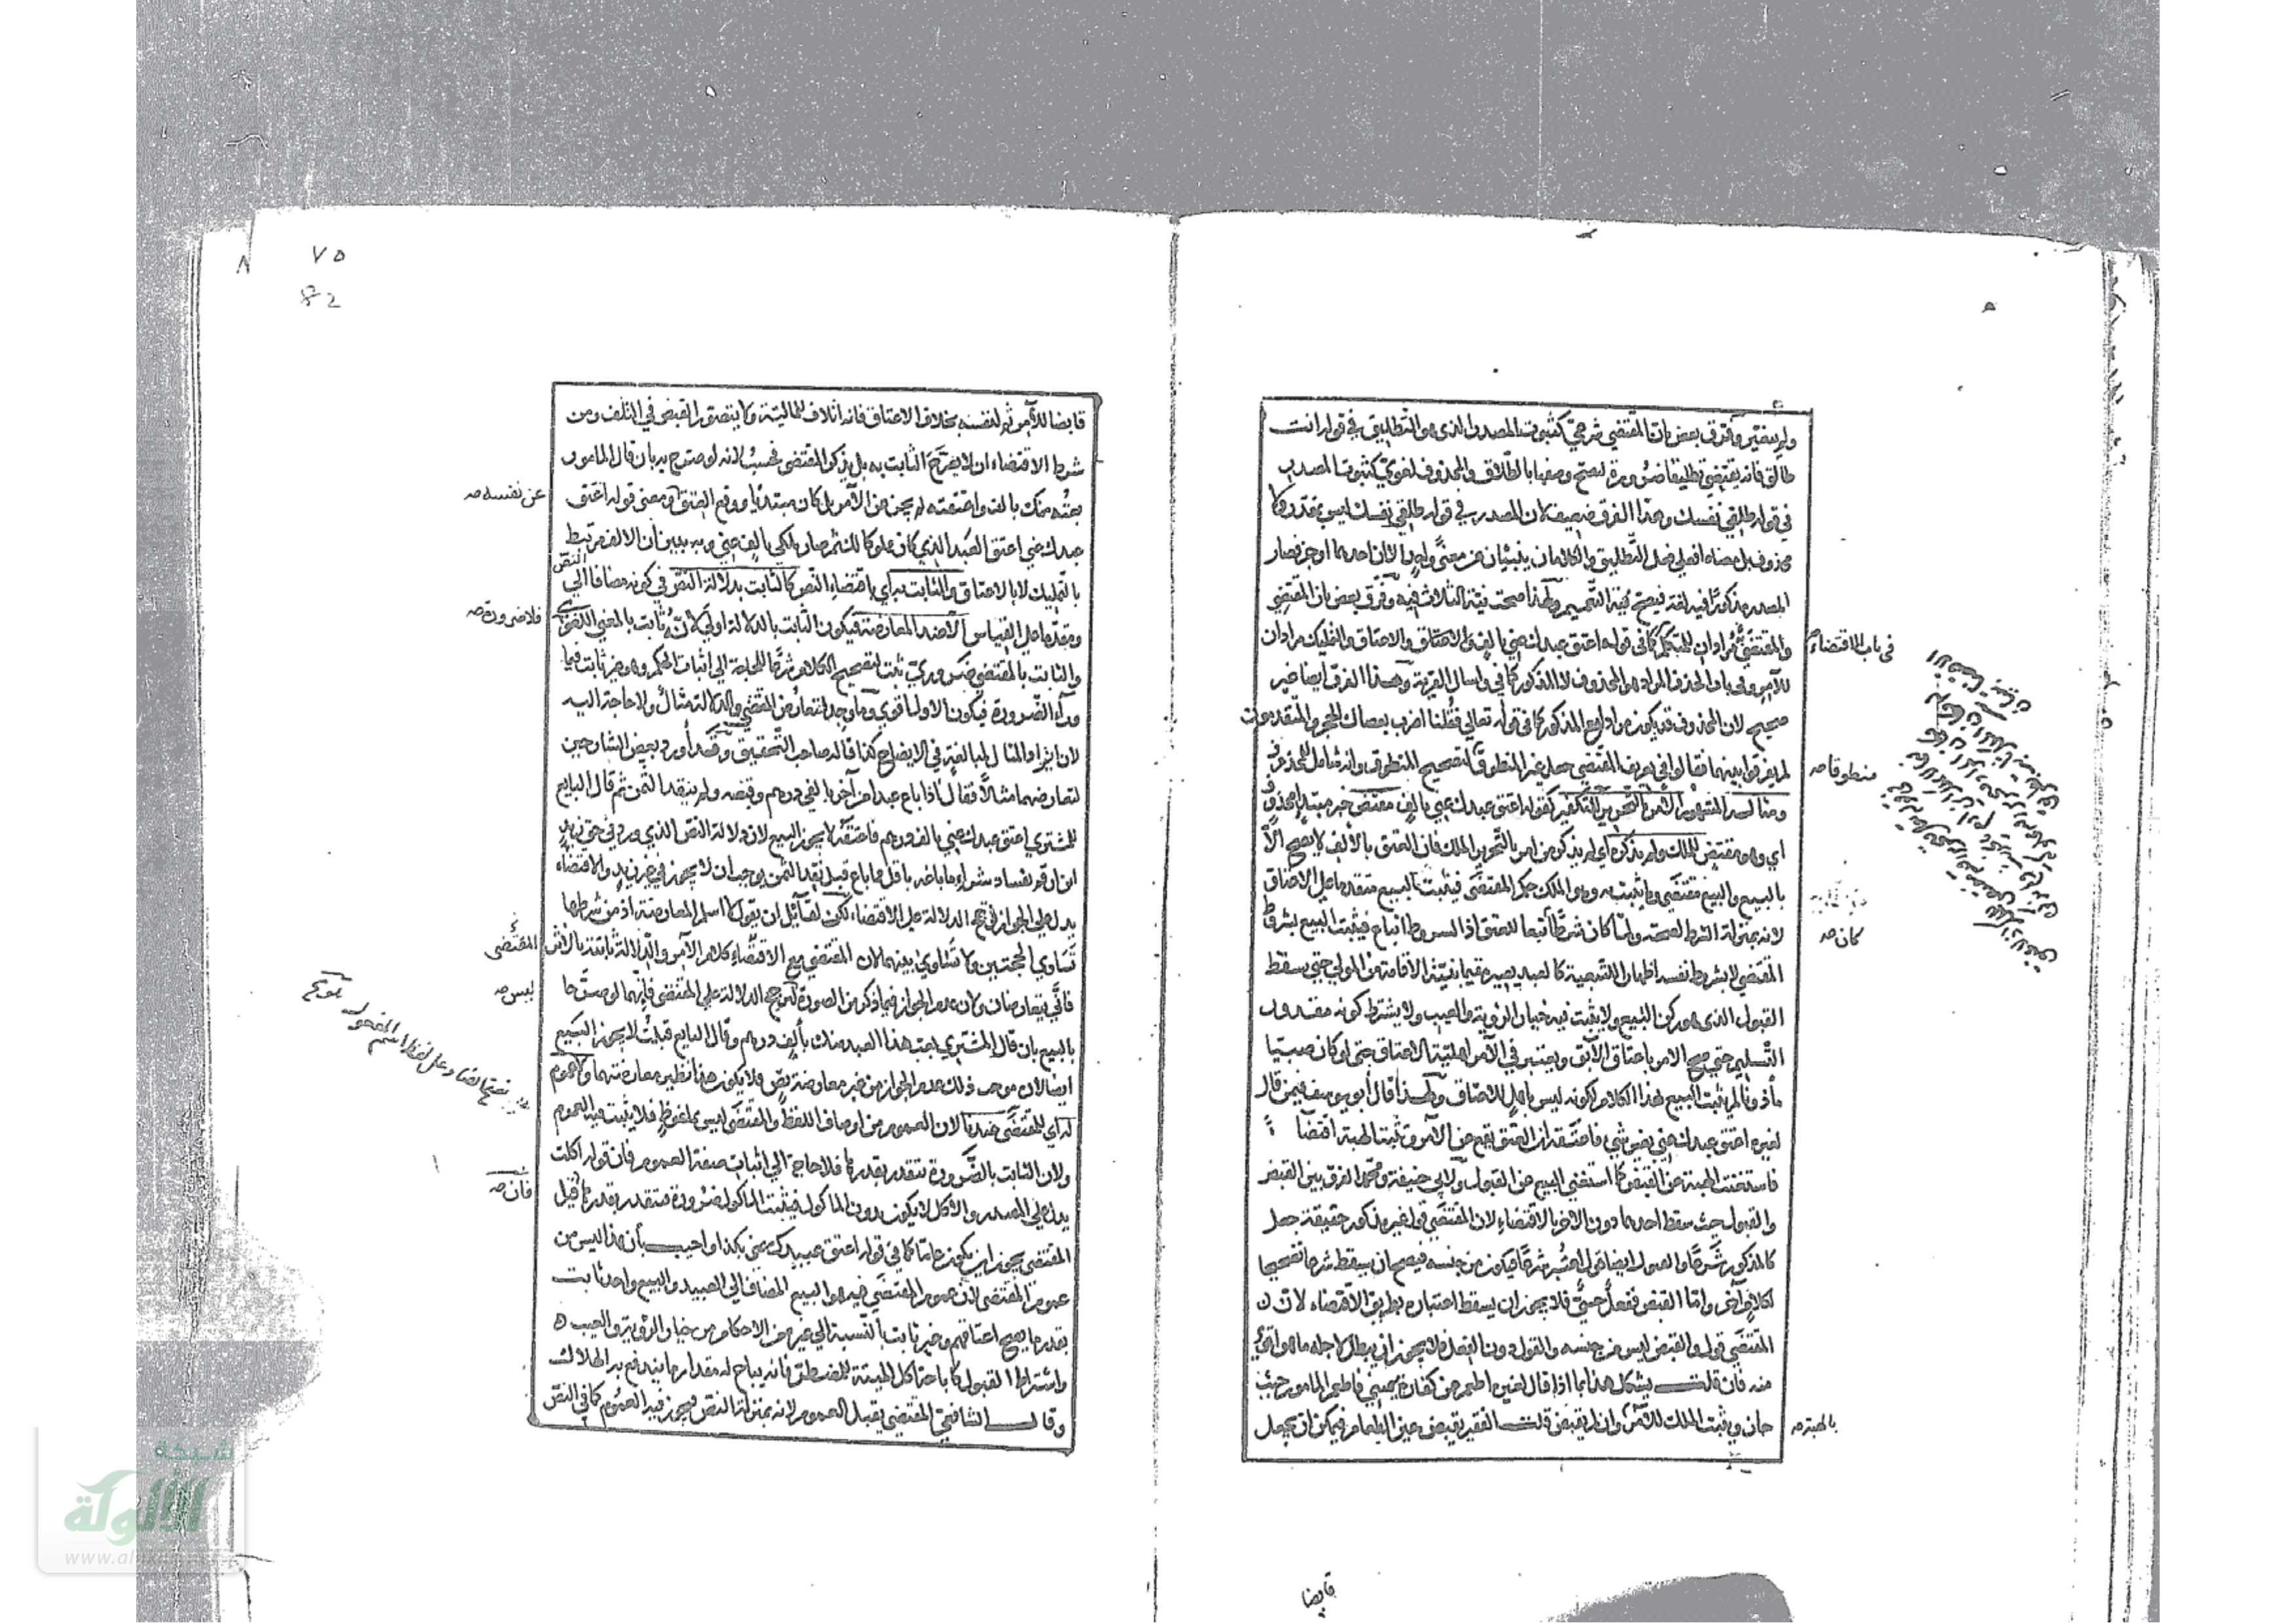 ولم يتغير وفرق بعض بان المقتضي شرعي كثبوت المصدر الذي هو التطليق في قوله انت
طالق فانه يقتضي تطليقا ضرورة ليصح وصفها بالطلاق والمحذوف لغوي كثبوت المصدر
في قوله طلقي نفسك وهذا الفرق ضعيف لان المصدر في قوله طلقي نفسك ليس بمقدر ولا
محذوف بل معناه افعلي فعل التطليق والكلامان ينبئان عن معنى واحد الا ان احدهما اوجز فصار
المصدر مذكورا فيه لغة فيصح نية التعميم ولهذا صحت نية الثلاث فيه وفرق بعض بان المقتضي
والمقتضى مرادان للمتكلم كما في قوله اعتق عبدك عني بالف فالاعتاق والتمليك مرادان
في باب الاقتضاء
للآمر وفي باب الحذف المراد هو المحذوف لا المذكور كما في واسأل القرية وهذا الفرق ايضا غير
صحيح لان المحذوف قد يكون مرادا مع المذكور كما في قوله تعالى فقلنا اضرب بعصاك الحجر والمتقدمون
لم يفرقوا بينهما فقالوا في تعريف المقتضى جعل غير المنطوق لتصحيح المنطوق وانه شامل للمحذوف
منطوقا صح
ومثاله المشهور الامر بالتحرير للتكفير كقوله اعتق عبدك عني بالف مقتض خبر مبتدأ محذوف
اي وهو مقتض للملك ولم يذكره اي لم يذكر من امر بالتحرير الملك فان العتق بالألف لا يصح الا
بالبيع والبيع مقتضى وما يثبت به وهو الملك حكم المقتضى فيثبت البيع متقدما على الاعتاق
لانه بمنزلة الشرط لصحته ولما كان شرطا تبعا للعتق اذ الشروط اتباع فيثبت البيع بشروط
كان صح
المقتضي لا بشروط نفسه اظهارا للتبعية كالعبد يصير مقيما بنية الاقامة من المولى حتى يسقط
القبول الذي هو ركن البيع ولا يثبت فيه خيار الرؤية والعيب ولا يشترط كونه مقدور
التسليم حتى صح الامر باعتاق الآبق ويعتبر في الآمر اهلية الاعتاق حتى لو كان صبيا
مأذونا لم يثبت البيع بهذا الكلام لكونه ليس باهل للاعتاق ولهذا قال أبو يوسف فيمن قال
لغيره اعتق عبدك عني بغير شيء فاعتقه ان العتق يقع عن الآمر وتثبت الهبة اقتضاً
فاستغنت الهبة عن القبض كما استغنى البيع عن القبول ولابي حنيفة ومحمد الفرق بين القبض
والقبول حيث سقط احدهما دون الاخر بالاقتضاء لان المقتضى قول غير مذكور حقيقة جعل
كالمذكور شرعا والقبول ايضا قول اعتبر شرعا فيكون من جنسه فيصح ان يسقط شرعا تصحيحا
لكلام آخر واما القبض ففعل حسي فلا يجوز ان يسقط اعتباره بطريق الاقتضاء لان
المقتضى قول والقبض ليس من جنسه والقول دون الفعل فلا يجوز ان يبطل لاجله ما هو اقوى
منه فان قلت يشكل هذا بما اذا قال لغيره اطعم عن كفارة يميني فاطعم المأمور حيث
جاز ويثبت الملك للآمر وان لم يقبض قلت الفقير يقبض عين الطعام فيمكن ان يجعل
بالهبة صح
قابضا
٧٥
82
قابضا للآمر ثم لنفسه بخلاف الاعتاق فانه اتلاف للمالية ولا يتصور القبض في التلف ومن
شرط الاقتضاء ان لا يصرح الثابت به بل يذكر المقتضي فحسب لانه لو صرح به بان قال المأمور
بعته منك بالف واعتقته لم يجز عن الآمر بل كان مبتدئا ووقع العتق ومعنى قوله اعتق
عن نفسه صح
عبدك عني اعتق العبد الذي كان مملوكا لك ثم صار ملكي بالف عني وبه يتبين أن الالف مرتبط
بالتمليك لا بالاعتاق والثابت به أي باقتضاء النص كالثابت بدلالة النص في كونه مضافا الى
النص
ومقدما على القياس الا عند المعارضة فيكون الثابت بالدلالة اولى لانه ثابت بالمعنى اللغوي
فلا ضرورة صح
والثابت بالمقتضي ضروري ثبت لتصحيح الكلام شرعا للحاجة الى اثبات الحكم وهو غير ثابت فيما
وراء الضرورة فيكون الاول اقوى وما وجد لتعارض المقتضى والدلالة مثال ولا حاجة اليه
لان ايراد المثال للمبالغة في الايضاح كذا قاله صاحب التحقيق وقد أورد بعض الشارحين
لتعارضهما مثالا فقال اذا باع عبدا من آخر بالفي درهم وقبضه ولم ينقد الثمن ثم قال البايع
للمشتري اعتق عبدك عني بالف درهم فاعتقه لا يجوز البيع لان دلالة النص الذي ورد في حق زيد
ابن ارقم بفساد شراء ما باعه باقل مما باع قبل نقد الثمن يوجب ان لا يجوز في غير زيد والاقتضاء
يدل على الجواز فترجح الدلالة على الاقتضاء لكن لقائل ان يقول لا اسلم المعارضة اذ من شرطها
تساوي الحجتين ولا تساوي بينهما لان المقتضي مع الاقتضاء كلام الآمر والدلالة ثابتة بالاثر
المقتضى
فانى يتعارضان ولان عدم الجواز فيما ذكر من الصورة لترجح الدلالة على المقتضى فانهما لو صرحا
ليس صح
بالبيع بان قال المشتري بعت هذا العبد منك بألف درهم وقال البايع قبلت لا يجوز البيع
ايضا لان موجب ذلك عدم الجواز من غير معارضة نص فلا يكون هذا نظير معارضتهما ولا عموم
له أي للمقتضى عندنا لان العموم من اوصاف اللفظ والمقتضى ليس بملفوظ فلا يثبت فيه العموم
بفتح الضاد على لفظ اسم المفعول تلويح
ولان الثابت بالضرورة تتقدر بقدرها فلا حاجة الى اثبات صفة العموم فان قوله اكلت
فان صح
يدل على المصدر والاكل لا يكون بدون المأكول فيثبت المأكول ضرورة فتقدر بقدرها قيل
المقتضى يجوز ان يكون عاما كما في قوله اعتق عبيدك عني بكذا واجيب بأن هذا ليس من
عموم المقتضى لان عموم المقتضى فيه هو البيع المضاف الى العبيد والبيع واحد ثابت
بقدر ما يصح اعتاقهم وغير ثابت بالنسبة الى غيره من الاحكام من خيار الرؤية والعيب
واشتراط القبول كاباحة اكل الميتة للمضطر فانه يباح له مقدار ما يندفع به الهلاك
وقال الشافعي المقتضى يقبل العموم لانه بمنزلة النص فيجوز فيه العموم كما في النص
شبكة
الألوكة